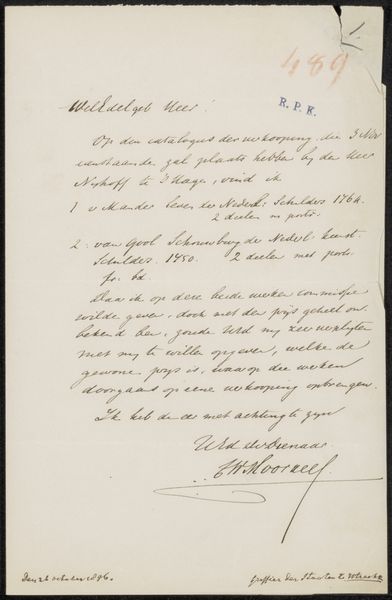 489
R. P. K.
WelEdelgeb Heer!
Op den catalogus der verkooping die 3 Nov
aanstaande zal plaats hebben bij den Heer
Nijhoff te 's Hage, vind ik
1 v Mander leven der Nederl. Schilders 1764.
2 deelen m portr.
2. van Gool Schouwburg der Nederl. kunst-
Schilders. 1750. 2 deelen met portr.
fr. bd.
Daar ik op deze beide werken commissie
wilde geven, doch met den prijs geheel on-
bekend ben, zoude UEd mij zeer verpligten
met mij te willen opgeven, welke de
gewone prijs is, waarop die werken
doorgaans op eene verkooping opbrengen.
Ik heb de eer met achting te zijn
UEd dw Dienaar
den 26 october 1896.
griffier der Staten v. Utrecht